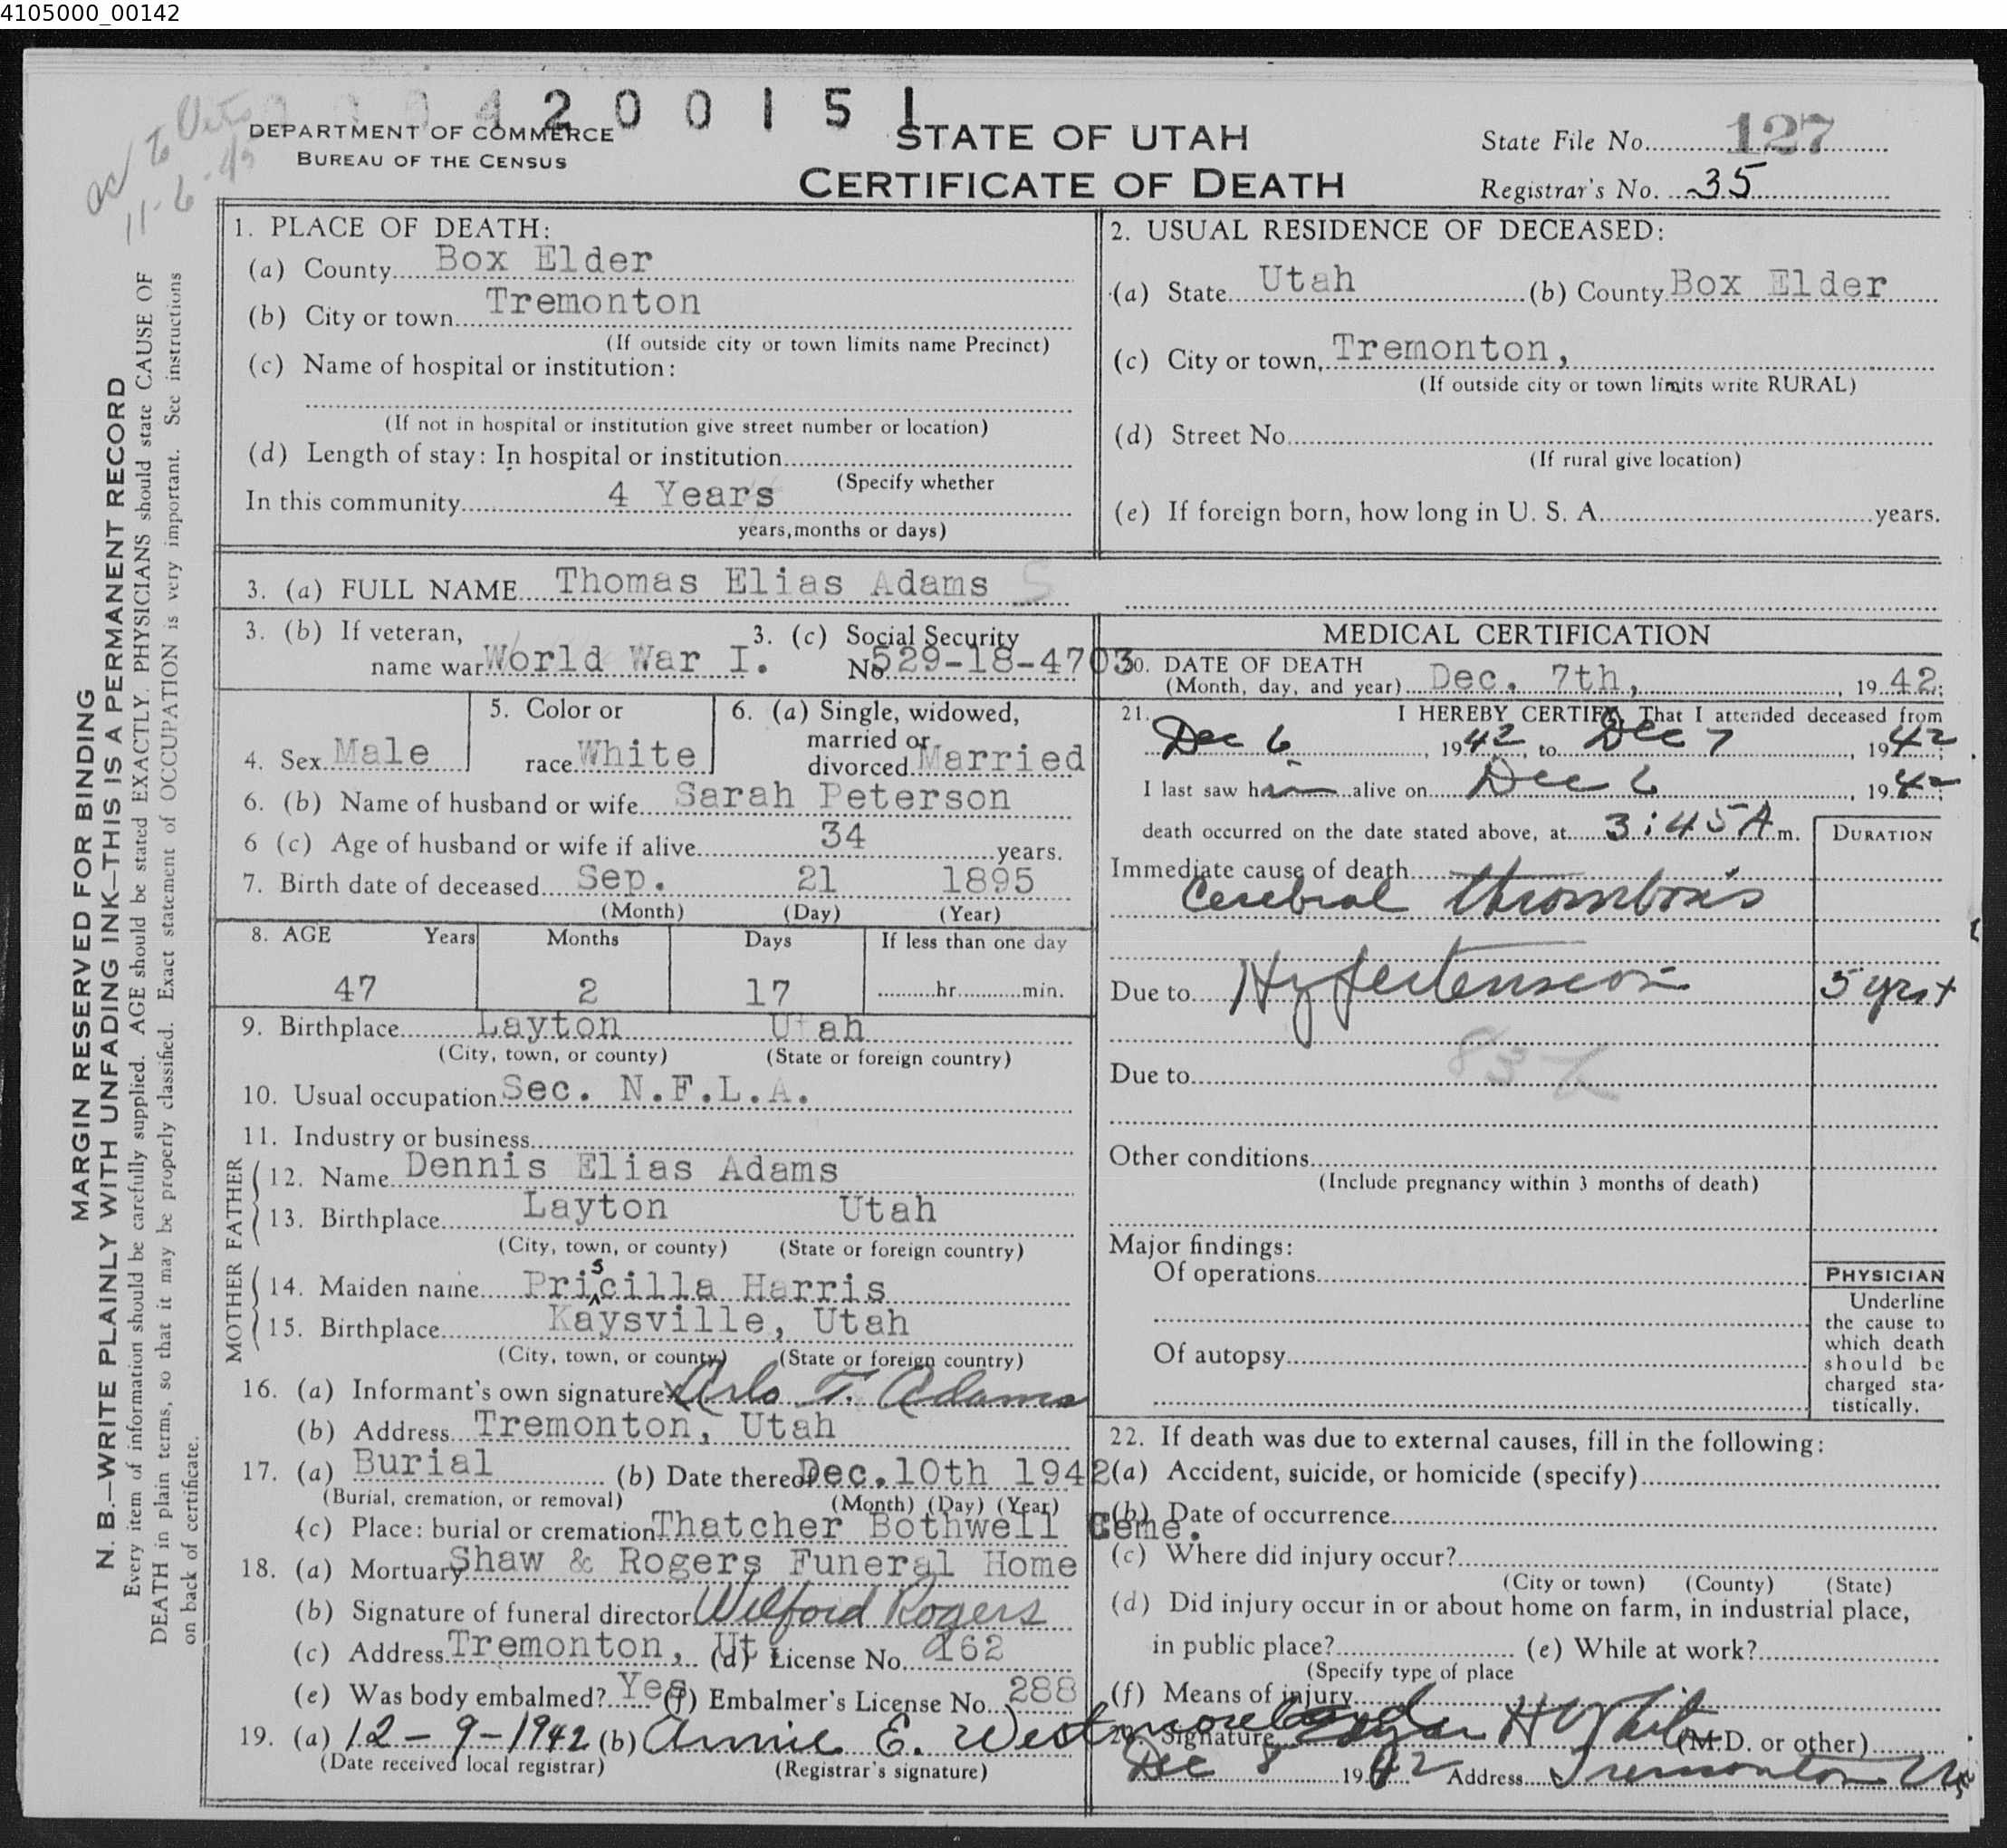 4105000_00142
4200151
DEPARTMENT OF COMMERCE
BUREAU OF THE CENSUS
STATE OF UTAH
CERTIFICATE OF DEATH
State File No. 127
Registrar's No. 35
11-6-43
MARGIN RESERVED FOR BINDING
N. B.—WRITE PLAINLY WITH UNFADING INK—THIS IS A PERMANENT RECORD
Every item of information should be carefully supplied. AGE should be stated EXACTLY. PHYSICIANS should state CAUSE OF
DEATH in plain terms, so that it may be properly classified. Exact statement of OCCUPATION is very important. See instructions
on back of certificate.
1. PLACE OF DEATH:
(a) County Box Elder
(b) City or town Tremonton
(If outside city or town limits name Precinct)
(c) Name of hospital or institution:
(If not in hospital or institution give street number or location)
(d) Length of stay: In hospital or institution
(Specify whether
In this community 4 Years
years, months or days)
2. USUAL RESIDENCE OF DECEASED:
(a) State Utah (b) County Box Elder
(c) City or town, Tremonton,
(If outside city or town limits write RURAL)
(d) Street No.
(If rural give location)
(e) If foreign born, how long in U. S. A. years.
3. (a) FULL NAME Thomas Elias Adams
3. (b) If veteran,
name war World War I.
3. (c) Social Security
No. 529-18-4703
4. Sex Male
5. Color or
race White
6. (a) Single, widowed,
married or
divorced Married
6. (b) Name of husband or wife Sarah Peterson
6 (c) Age of husband or wife if alive 34 years.
7. Birth date of deceased Sep. 21 1895
(Month) (Day) (Year)
8. AGE Years Months Days If less than one day
47 2 17 hr. min.
9. Birthplace Layton Utah
(City, town, or county) (State or foreign country)
10. Usual occupation Sec. N.F.L.A.
11. Industry or business
FATHER
12. Name Dennis Elias Adams
13. Birthplace Layton Utah
(City, town, or county) (State or foreign country)
MOTHER
14. Maiden name Priscilla Harris
15. Birthplace Kaysville, Utah
(City, town, or county) (State or foreign country)
16. (a) Informant's own signature x Arlo T. Adams
(b) Address Tremonton, Utah
17. (a) Burial (b) Date thereof Dec. 10th 1942
(Burial, cremation, or removal) (Month) (Day) (Year)
(c) Place: burial or cremation Thatcher Bothwell Ceme.
18. (a) Mortuary Shaw & Rogers Funeral Home
(b) Signature of funeral director Wilford Rogers
(c) Address Tremonton, Ut. (d) License No. 162
(e) Was body embalmed? Yes (f) Embalmer's License No. 288
19. (a) 12-9-1942 (b) Annie E. Westmoreland
(Date received local registrar) (Registrar's signature)
MEDICAL CERTIFICATION
20. DATE OF DEATH
(Month, day, and year) Dec. 7th, , 19 42;
21. I HEREBY CERTIFY, That I attended deceased from
Dec 6 , 1942, to Dec 7 , 1942;
I last saw him alive on Dec 6 , 1942;
death occurred on the date stated above, at 3:45 A m.
DURATION
Immediate cause of death
Cerebral thrombosis
Due to Hypertension 5 yrs +
Due to
Other conditions
(Include pregnancy within 3 months of death)
Major findings:
Of operations
Of autopsy
PHYSICIAN
Underline
the cause to
which death
should be
charged sta-
tistically.
22. If death was due to external causes, fill in the following:
(a) Accident, suicide, or homicide (specify)
(b) Date of occurrence
(c) Where did injury occur?
(City or town) (County) (State)
(d) Did injury occur in or about home on farm, in industrial place,
in public place? (e) While at work?
(Specify type of place
(f) Means of injury
Signature H White (M.D. or other)
Dec 8 1942 Address Tremonton